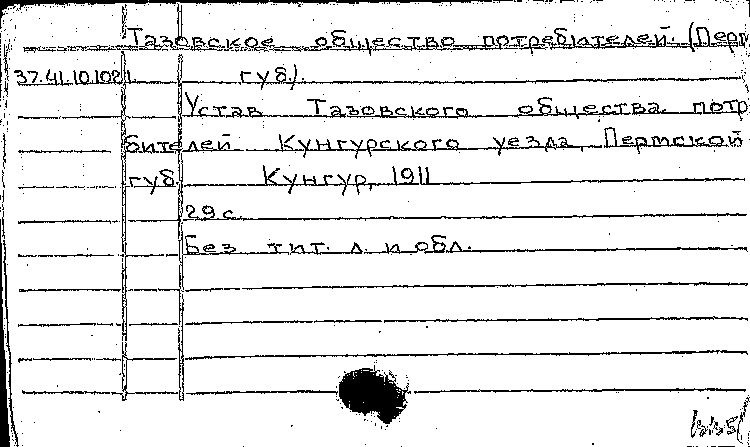 Тазовское общество потребителей. (Перм
37.41.10.1021. губ.).
Устав Тазовского общества потр
бителей Кунгурского уезда, Пермской
губ. Кунгур, 1911
29 с.
Без тит. л. и обл.